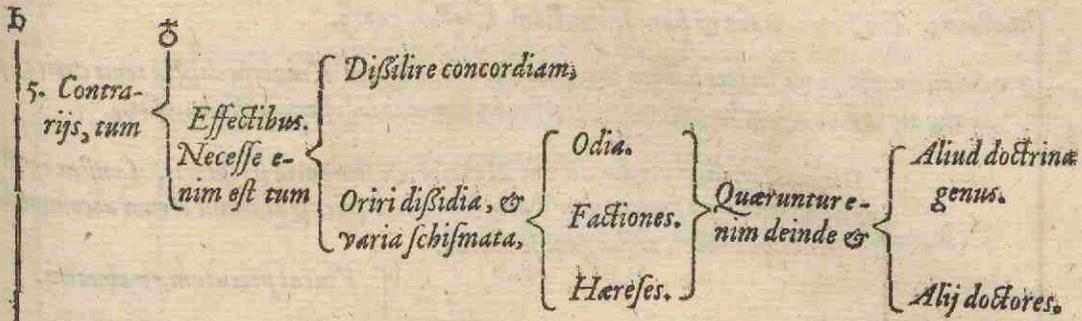 h
♁
5. Contra-
rijs, tum
Effectibus.
Necesse e-
nim est tum
Dißilire concordiam,
Oriri dißidia, &
varia schismata,
Odia.
Factiones.
Hæreses.
Quærunture-
nim deinde &
Aliud doctrinæ
genus.
Alij doctores.